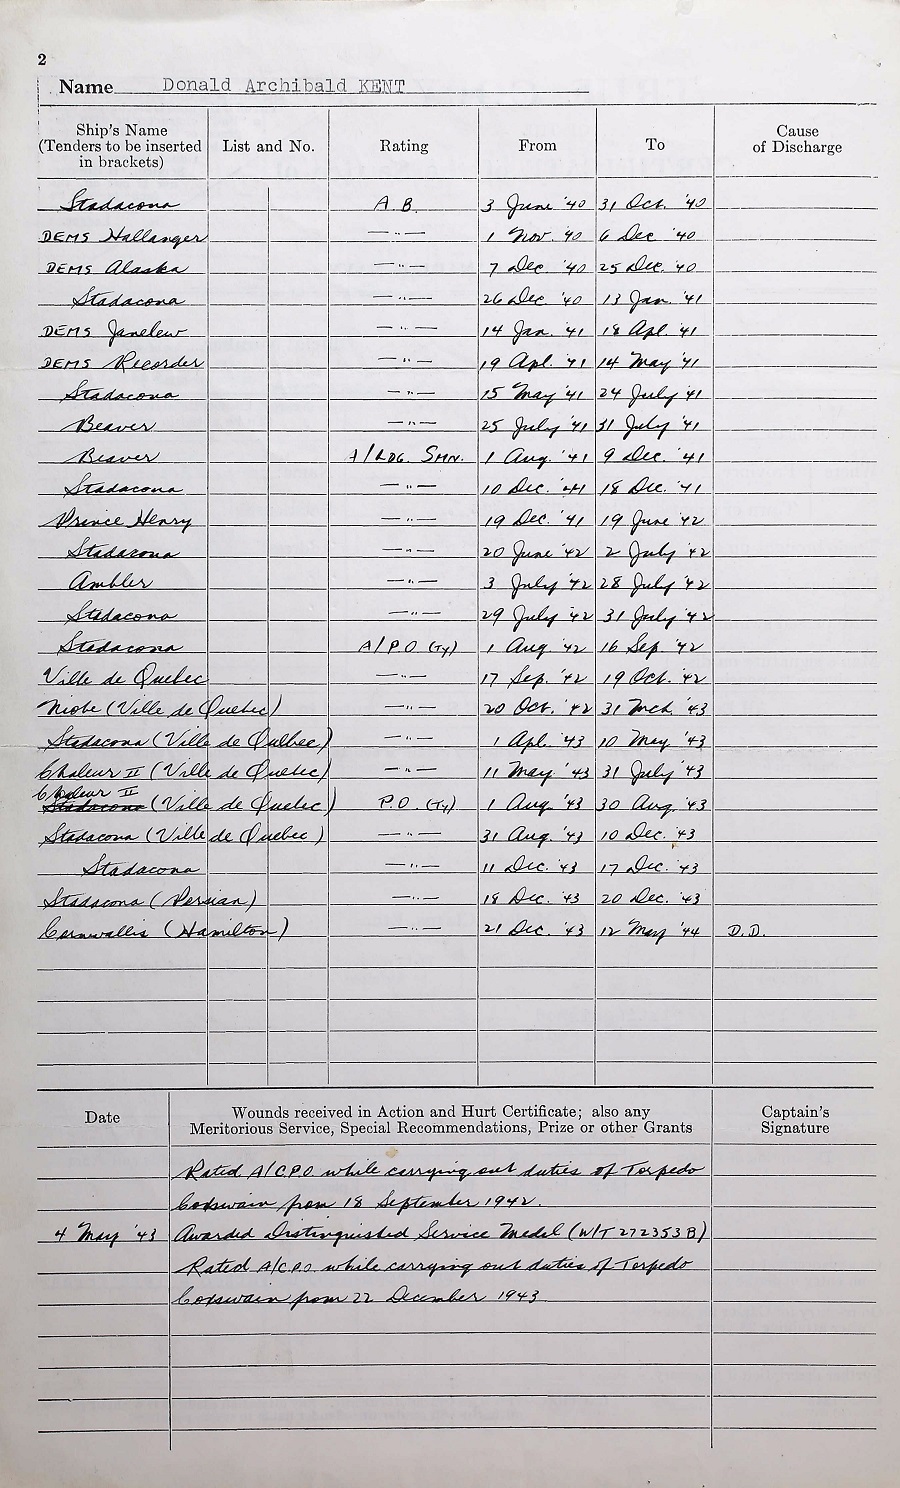 2
Name Donald Archibald KENT
Ship's Name (Tenders to be inserted in brackets) List and No. Rating From To Cause of Discharge
Stadacona A.B. 3 June '40 31 Oct. '40
DEMS Hallanger —"— 1 Nov. '40 6 Dec '40
DEMS Alaska —"— 7 Dec. '40 25 Dec. '40
Stadacona —"— 26 Dec. '40 13 Jan. '41
DEMS Janelew —"— 14 Jan. '41 18 Apl. '41
DEMS Recorder —"— 19 Apl. '41 14 May '41
Stadacona —"— 15 May '41 24 July '41
Beaver —"— 25 July '41 31 July '41
Beaver A/LDG. SMN. 1 Aug. '41 9 Dec. '41
Stadacona —"— 10 Dec. '41 18 Dec. '41
Prince Henry —"— 19 Dec. '41 19 June '42
Stadacona —"— 20 June '42 2 July '42
Ambler —"— 3 July '42 28 July '42
Stadacona —"— 29 July '42 31 July '42
Stadacona A/P.O (Ty) 1 Aug. '42 16 Sep. '42
Ville de Quebec —"— 17 Sep. '42 19 Oct. '42
Niobe (Ville de Quebec) —"— 20 Oct. '42 31 Mch. '43
Stadacona (Ville de Quebec) —"— 1 Apl. '43 10 May '43
Chaleur II (Ville de Quebec) —"— 11 May '43 31 July '43
Chaleur II
Stadacona (Ville de Quebec) P.O. (Ty) 1 Aug '43 30 Aug '43
Stadacona (Ville de Quebec) —"— 31 Aug. '43 10 Dec. '43
Stadacona —"— 11 Dec. '43 17 Dec. '43
Stadacona (Persian) —"— 18 Dec. '43 20 Dec. '43
Cornwallis (Hamilton) —"— 21 Dec. '43 12 May '44 D.D.
Date Wounds received in Action and Hurt Certificate; also any Meritorious Service, Special Recommendations, Prize or other Grants Captain's Signature
Rated A/CPO while carrying out duties of Torpedo
Coxswain from 18 September 1942.
4 May '43 Awarded Distinguished Service Medal (W/T 272353B)
Rated A/CPO while carrying out duties of Torpedo
Coxswain from 22 December 1943